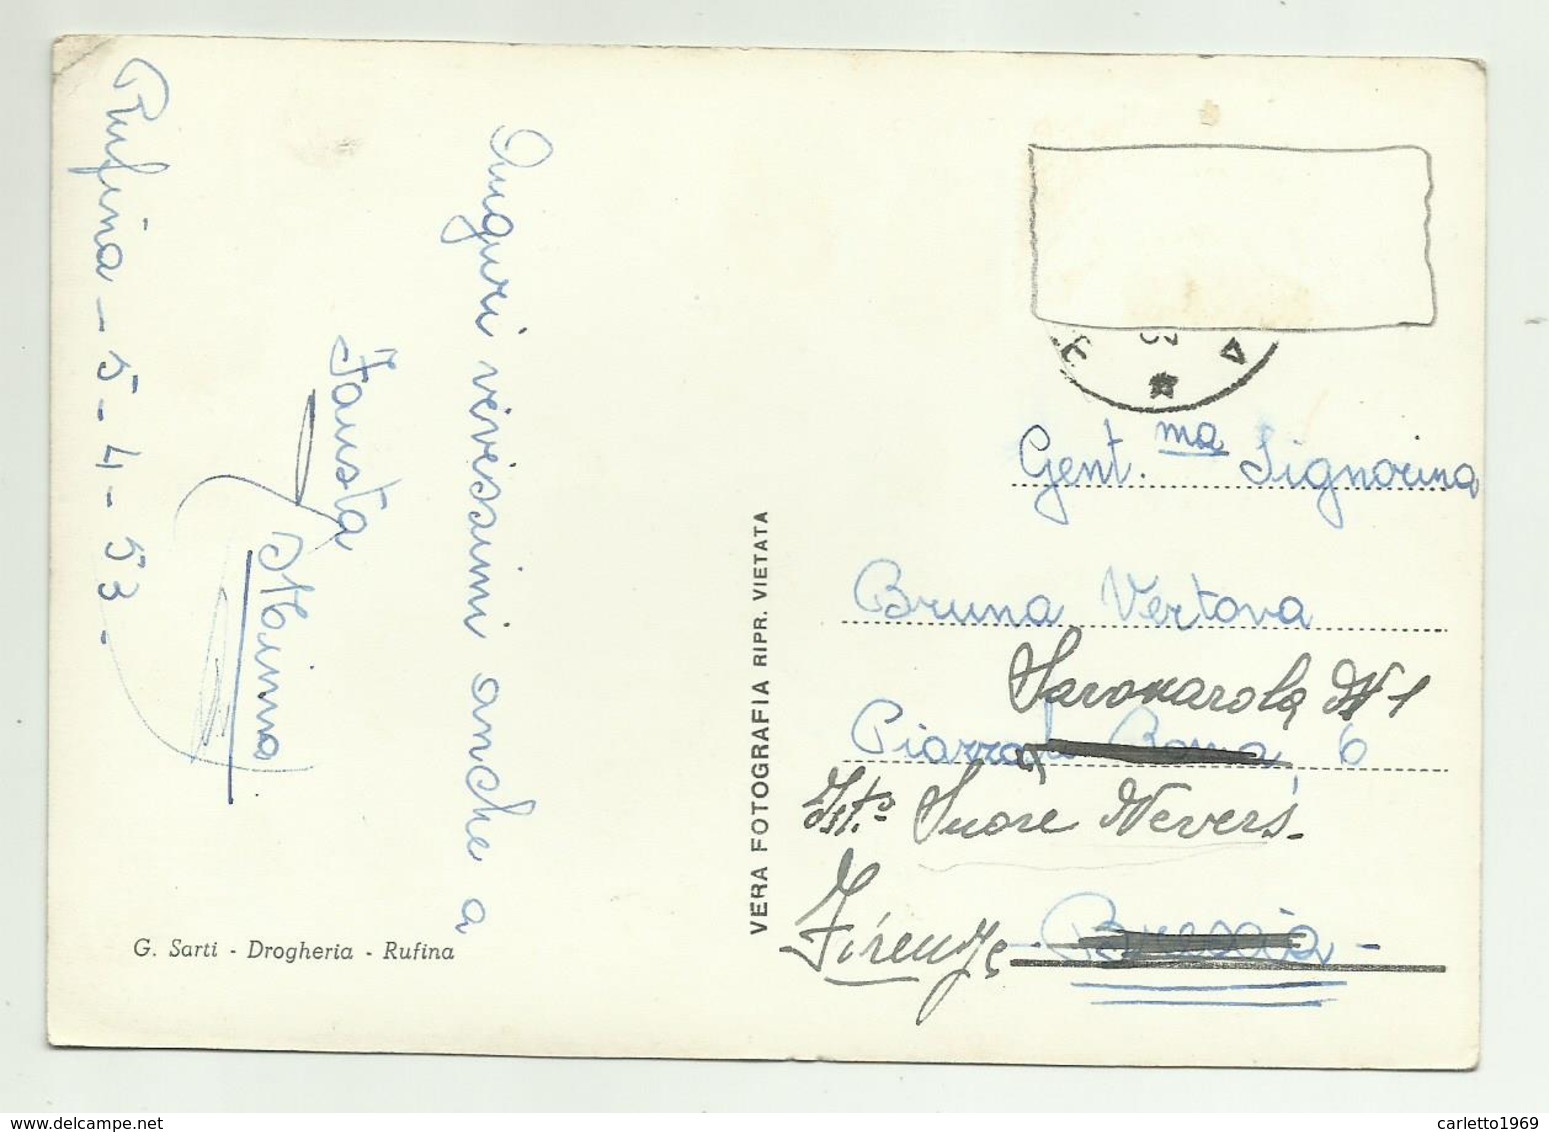 Rufina - 5 - 4 - 53 -
Auguri vivissimi anche a
Fausta
Mimma
G. Sarti - Drogheria - Rufina
VERA FOTOGRAFIA RIPR. VIETATA
Gent.ma Signorina
Bruna Vertova
Savonarola N 1
Piazza Roma, 6
Ist.o Suore Nevers.
Firenze
- Brescia -
carletto1969